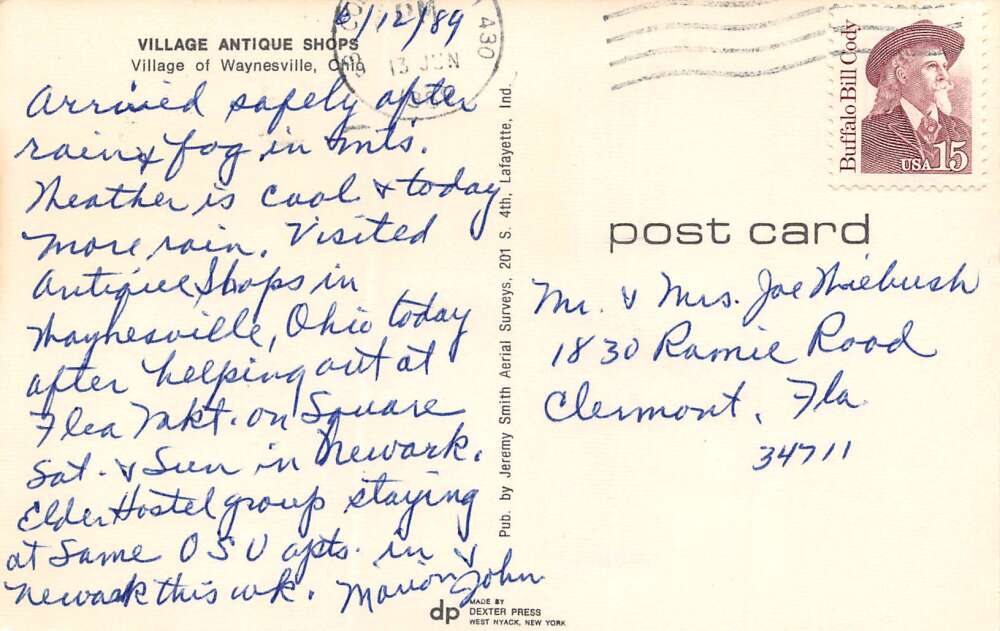 6/12/89
VILLAGE ANTIQUE SHOPS
Village of Waynesville, Ohio
Arrived safely after
rain & fog in mts.
Weather is cool & today
more rain. Visited
Antique Shops in
Waynesville, Ohio today
after helping out at
Flea Mkt. on Square
Sat. & Sun in Newark.
Elder Hostel group staying
at same OSU apts. in
Newark this wk. Marion & John
dp MADE BY
DEXTER PRESS
WEST NYACK, NEW YORK
Pub. by Jeremy Smith Aerial Surveys, 201 S. 4th, Lafayette, Ind.
PM
13 JUN
430
Buffalo Bill Cody
USA 15
post card
Mr. & Mrs. Joe Niebush
1830 Ramie Road
Clermont, Fla
34711